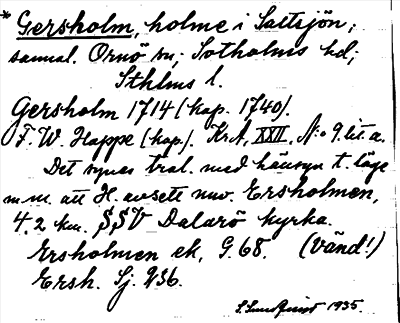 * Gersholm, holme i Saltsjön;
samml. Ornö sn; Sotholms hd;
Sthlms l.
Gersholm 1714 (kop. 1740).
F. W. Happe (kop.). Kr.A, XXII, N:o 9. lit. a.
Det synes tral. med hänsyn t. läge
m.m. att H. avsett nuv. Ersholmen,
4.2 km. SSV Dalarö kyrka.
Ersholmen ek, G. 68. (Vänd!)
Ersh. Sj. 936.
1935.